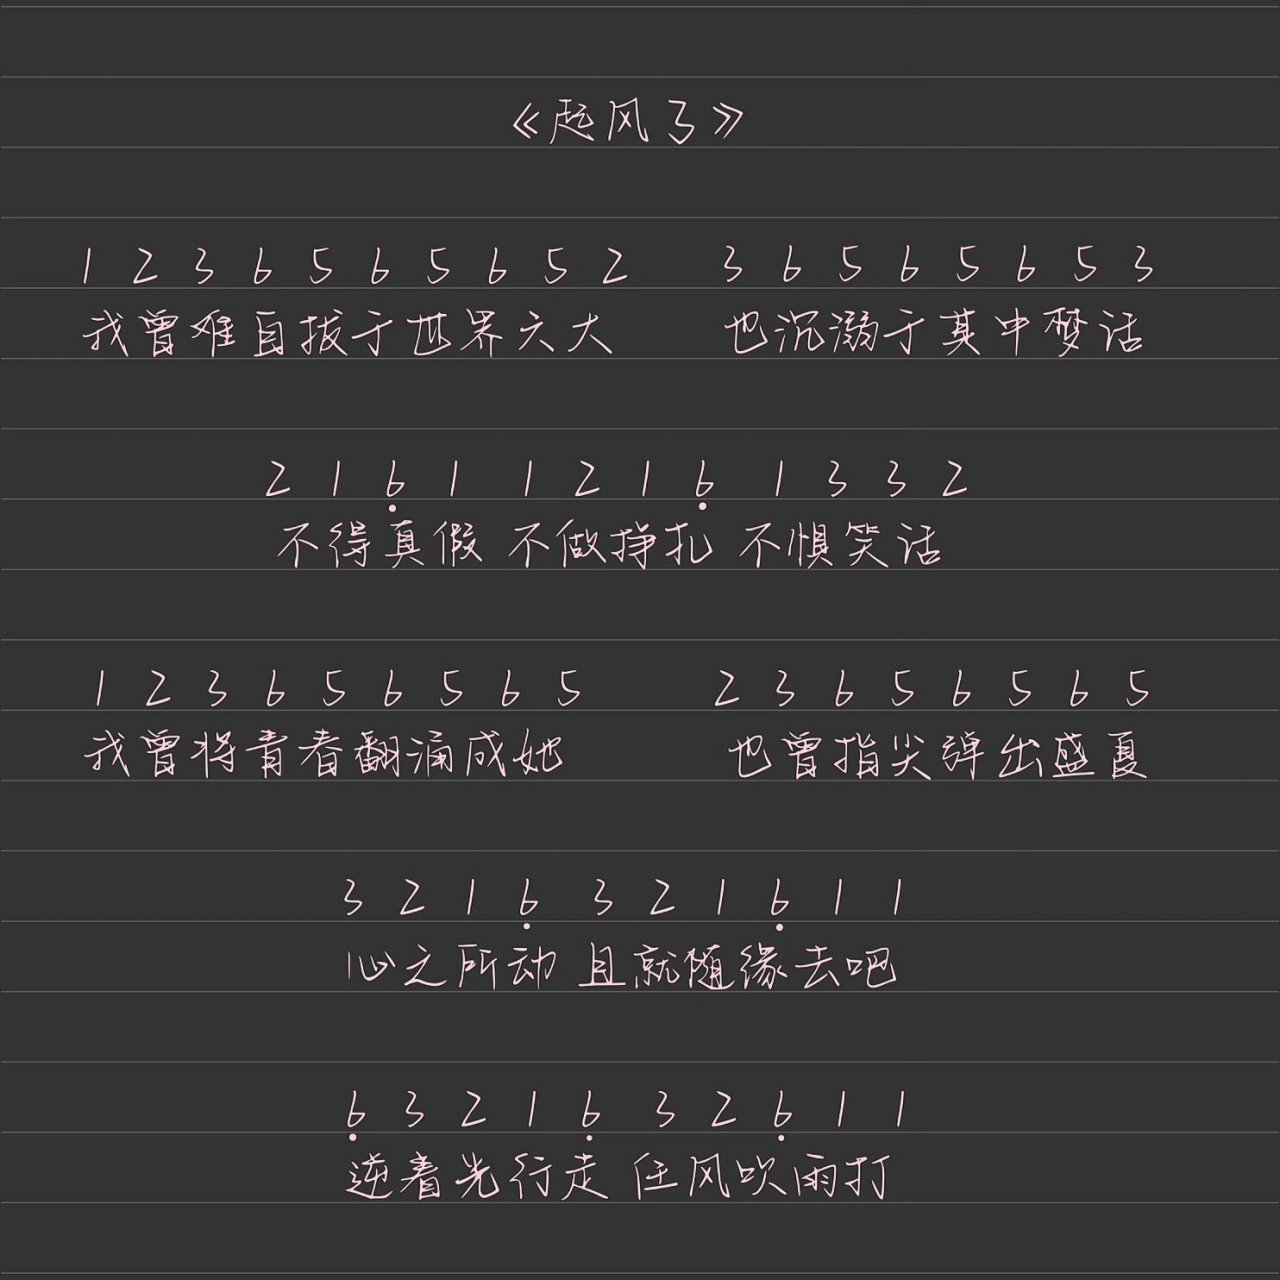 《起风了》
1 2 3 6 5 6 5 6 5 2 3 6 5 6 5 6 5 3
我曾难自拔于世界之大 也沉溺于其中梦话
2 1 6̣ 1 1 2 1 6̣ 1 3 3 2
不得真假 不做挣扎 不惧笑话
1 2 3 6 5 6 5 6 5 2 3 6 5 6 5 6 5
我曾将青春翻涌成她 也曾指尖弹出盛夏
3 2 1 6̣ 3 2 1 6̣ 1 1
心之所动 且就随缘去吧
6̣ 3 2 1 6̣ 3 2 6̣ 1 1
逆着光行走 任风吹雨打